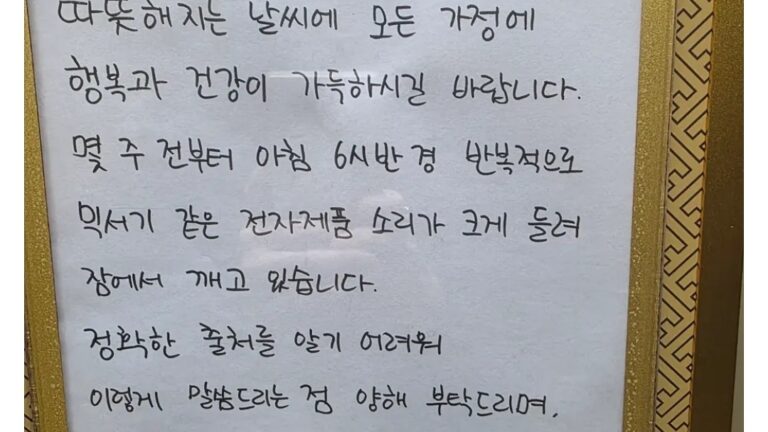 따뜻해지는 날씨에 모든 가정에
행복과 건강이 가득하시길 바랍니다.
몇 주 전부터 아침 6시반경 반복적으로
믹서기 같은 전자제품 소리가 크게 들려
잠에서 깨고 있습니다.
정확한 출처를 알기 어려워
이렇게 말씀드리는 점 양해 부탁드리며,